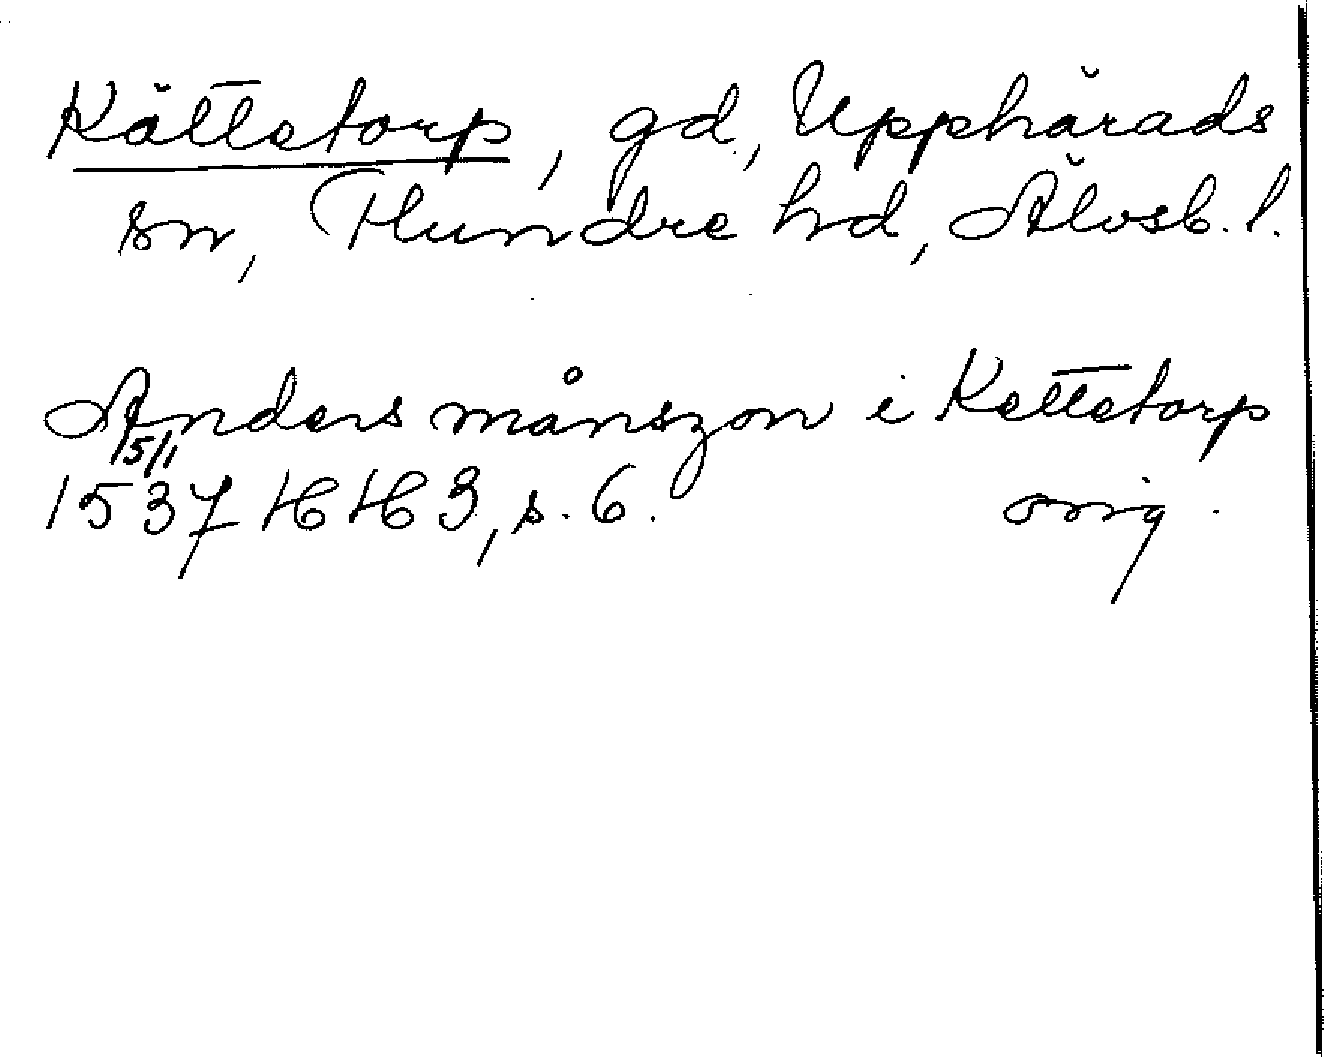 Kättetorp, gd, Upphärads
sn, Flundre hd, Älvsb. l.
Anders månszon i Kettetorp
15/1
1537 HH 3, s. 6. orig.